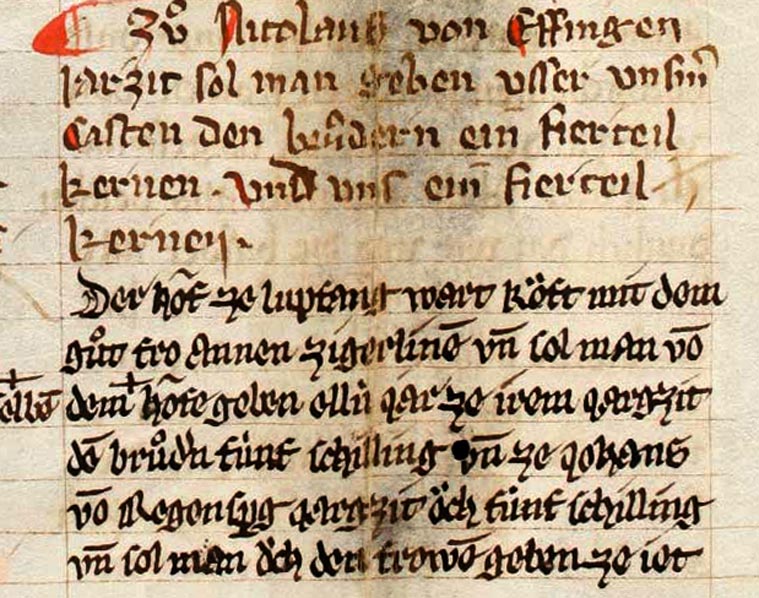 Zuͦ Nicolaus von Effingen
jarzit sol man geben vsser vnsm̄
Casten den bruͤdern ein fierteil
kernen . vnd vns ein fierteil
kernen .
Der hof ze lupfang wart koͤft mit dem
guͦt fro Annen zigerlinē vn̄ sol man vō
dem hofe geben ellú jar ze irem jargzit
dē bruͦdn fúnf schilling vn̄ ze johans
vō Regenspg jargzit oͤch fúnf schilling
vn̄ sol man oͤch den frowē geben ze iet